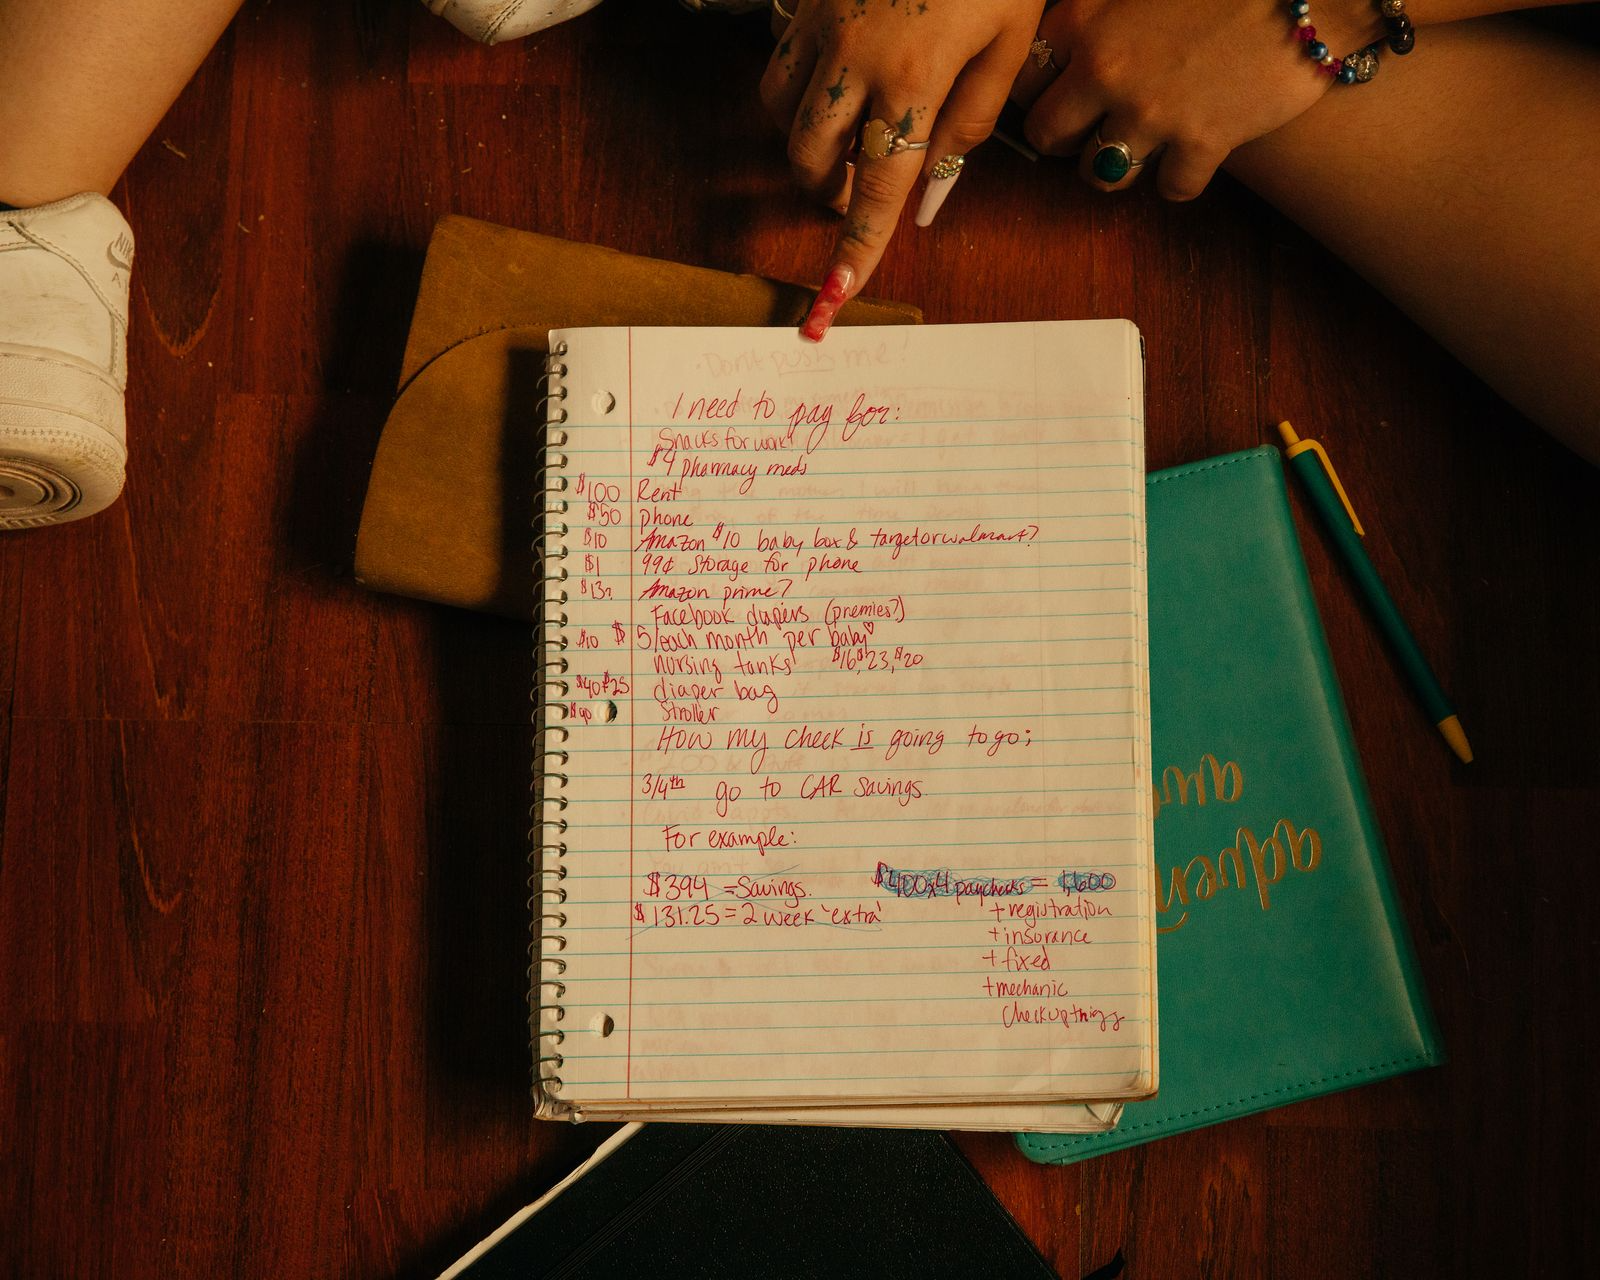 Don't push me!
I need to pay for:
Snacks for work!
$4 pharmacy meds
$100 Rent
$50 phone
$10 Amazon $10 baby box & target or walmart?
$1 99¢ storage for phone
$13? Amazon prime?
Facebook diapers (premies?)
$10 $5/each month per baby♡
nursing tanks! $16, $23, $20
$40+$25 diaper bag
$90 stroller
How my check is going to go;
3/4th go to CAR savings.
For example:
$394 = Savings. $400x4 paychecks = 1,600
$131.25 = 2 week 'extra' + registration
+ insurance
+ fixed
+ mechanic
checkup thingy
NIKE